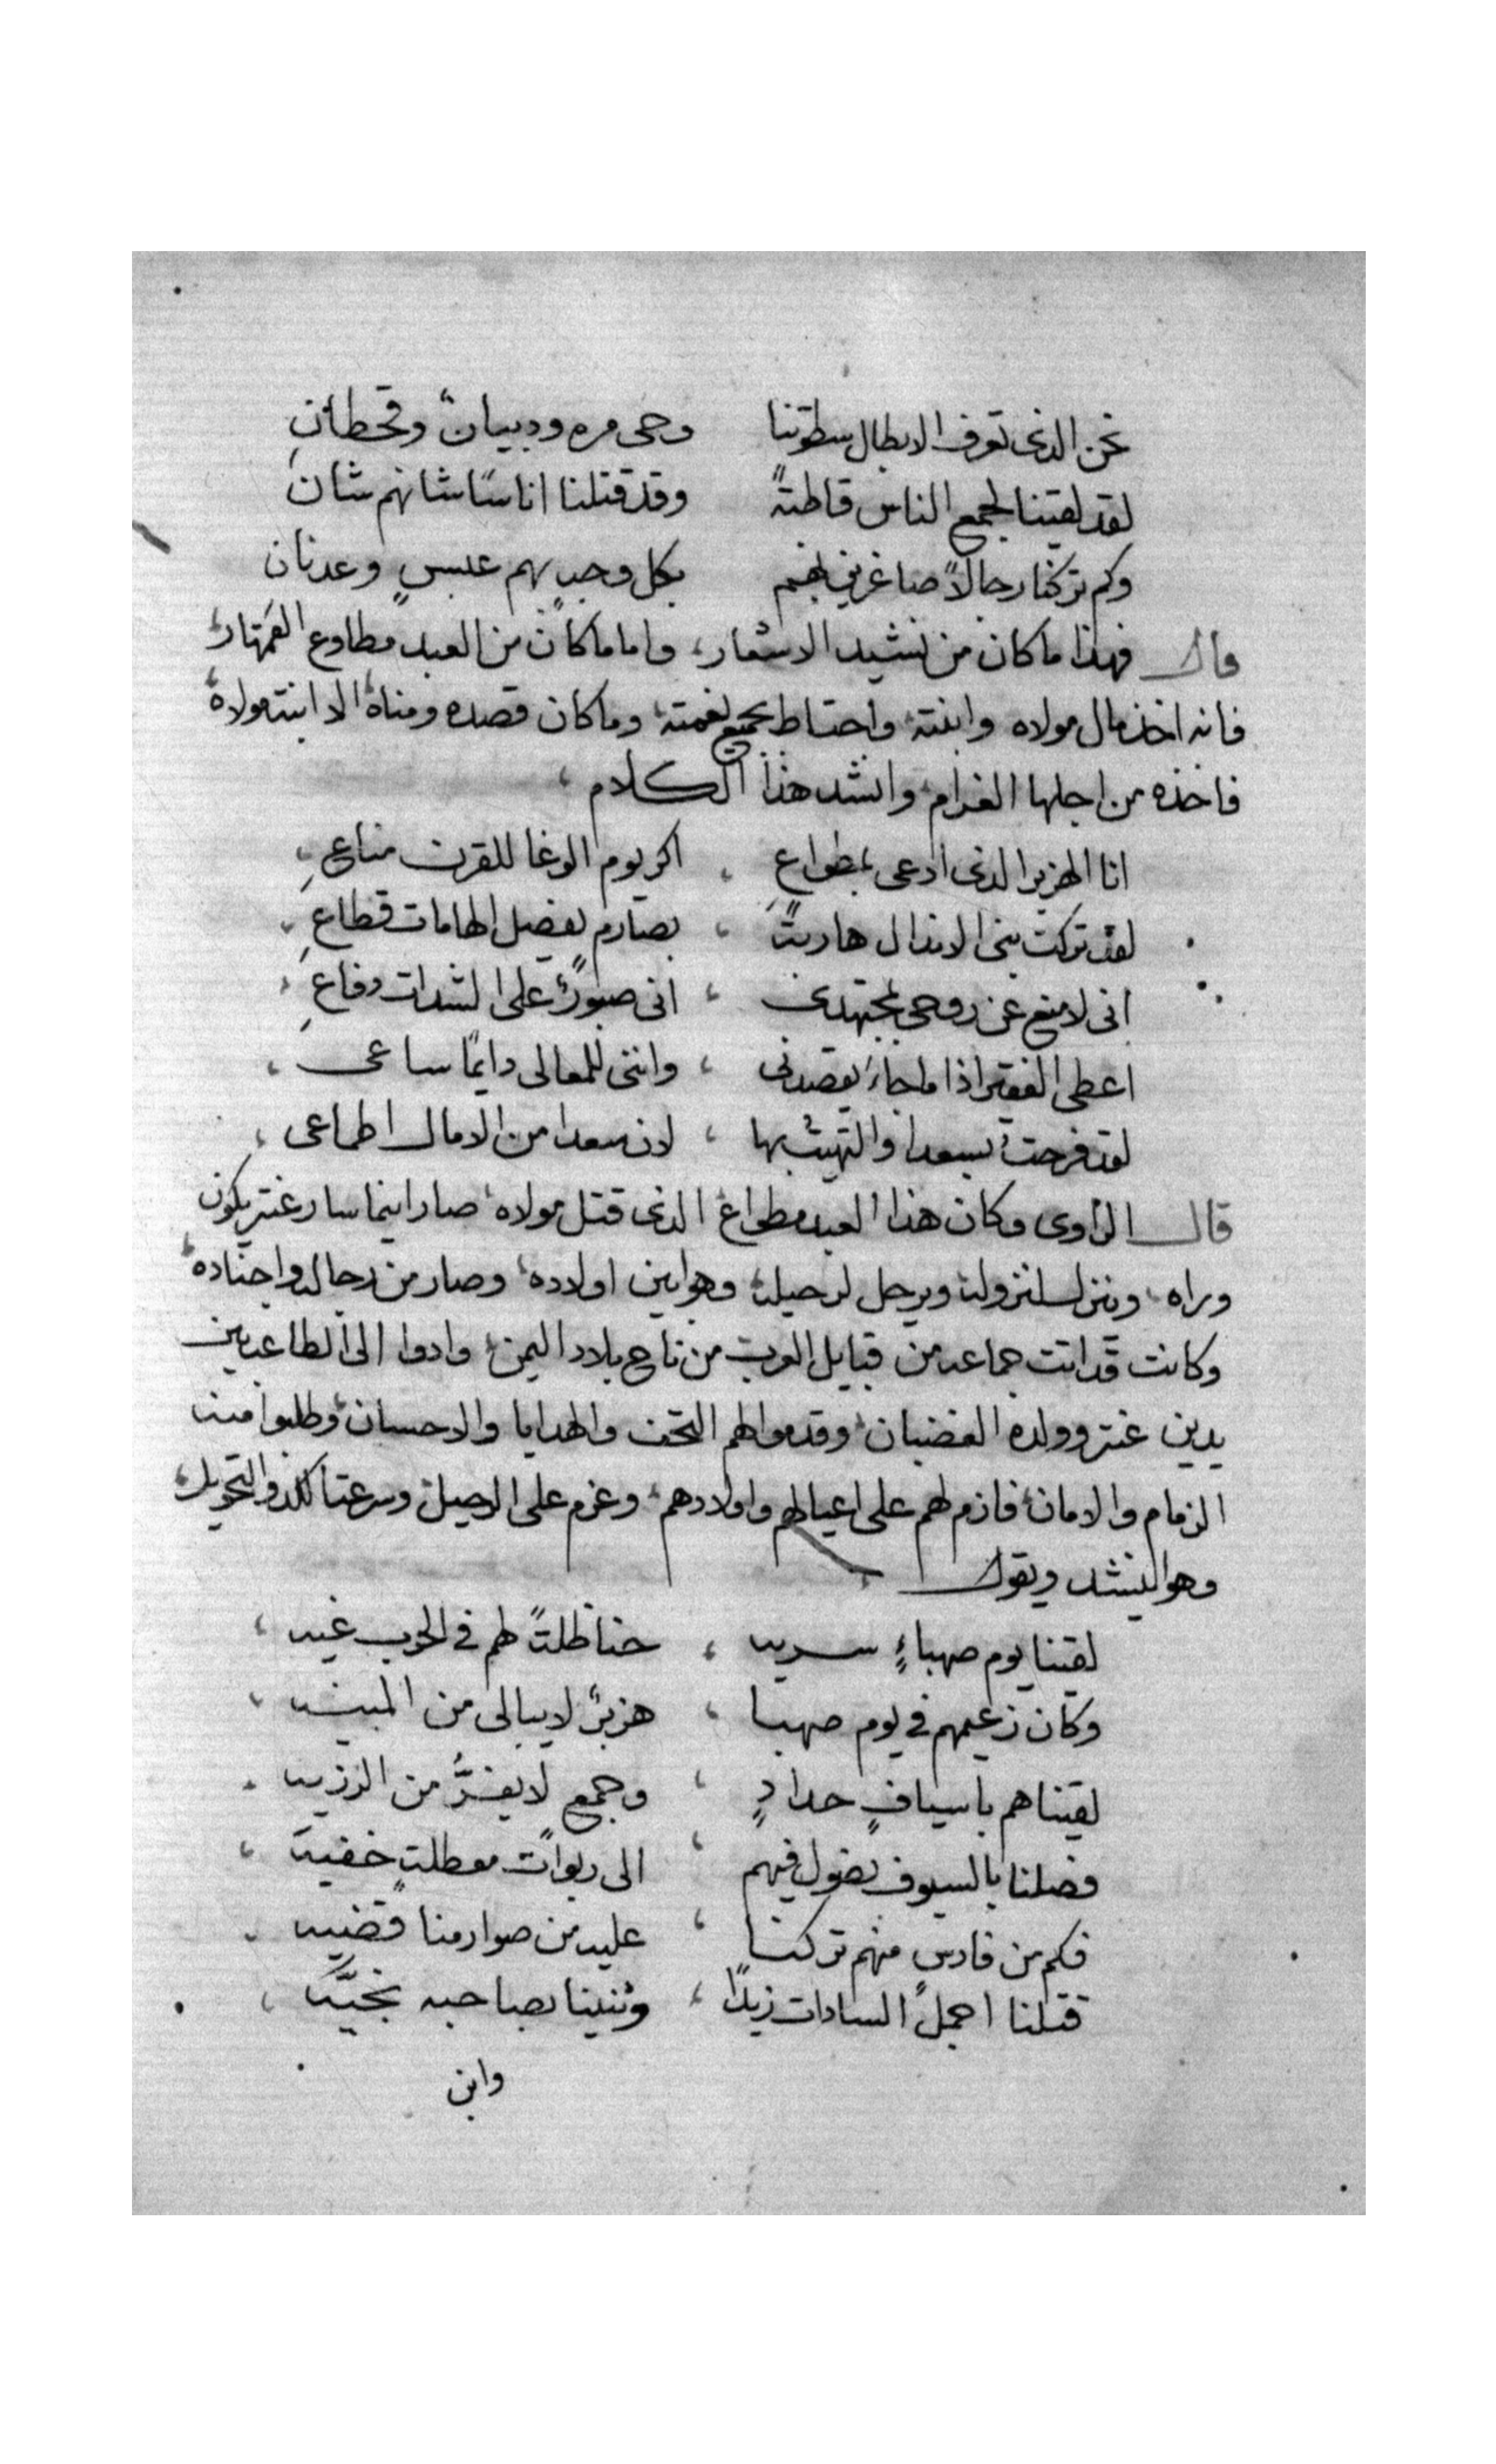 نحن الذى تعرف الابطال سطوتنا وحى مره ودبيان وقحطان
لقد لقينا لجمع الناس قاطبةً وقد قتلنا اناسًا شانهم شان
وكم تركنا رجالاً صاغرين لهم بكل وجبٍ بهم عبسٍ وعدنان
قال فهذا ما كان من نشيد الاشعار، واما ما كان من العبد مطاوع
فانه اخذ مال مولاه وابنته واحتاط بجميع نعمته وما كان قصده ومناه الا ابنة مولاه
فاخذه من اجلها الغرام وانشد هذا الكلام
انا الهزبر الذى ادعى بمطواعِ اكر يوم الوغا للقرن مناعِ
لقد تركت بنى الاندال هاربتاً بصارم يفصل الهامات قطاعِ
انى لامنع عن روحى بمجتهدى انى صبورٌ على الشدات دفاعِ
اعطى الفقير اذا ما جاء يقصدنى واننى للمعالى دايمًا ساعى
لقد فرحت بسعدا والتهيت بها لان سعدا من الامال اطماعى
قال الراوى وكان هذا العبد مطواع الذى قتل مولاه صار اينما سار عنتر يكون
وراه وينزل لنزوله ويرحل لرحيله وهو اين اولاده وصار من رجاله واجناده
وكانت قد اتت جماعه من قبايل العرب من ناح بلاد اليمن وادوا الى الطاعه بين
يدين عنتر وولده الغضبان وقدموا لهم التحف والهدايا والاحسان وطلبوا منه
الزمام والامان فازم لهم على اعيالهم واولادهم وعزم على الرحيل وسرعة والتحويل
وهو ينشد ويقول
لقينا يوم صهباءٍ سريه حناظلتً لهم فى الحرب غيه
وكان زعيمهم فى يوم صهبا هزبرٌ لا يبالى من المنيه
لقيناهم باسيافٍ حدادٍ وجمع لا يفرُّ من الرزيه
فصلنا بالسيوف نصول فيهم الى ربوات معطلةٍ خفيه
فكم من فارسٍ منهم تركنا عليه من صوارمنا قضيه
قتلنا اجمل السادات زيدًا وثنينا بصاحبه بخيَّه
وابن